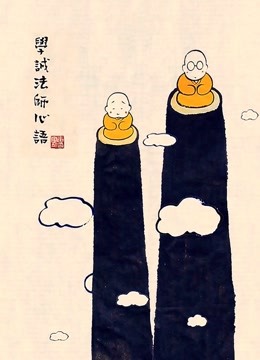 學誠法師心語